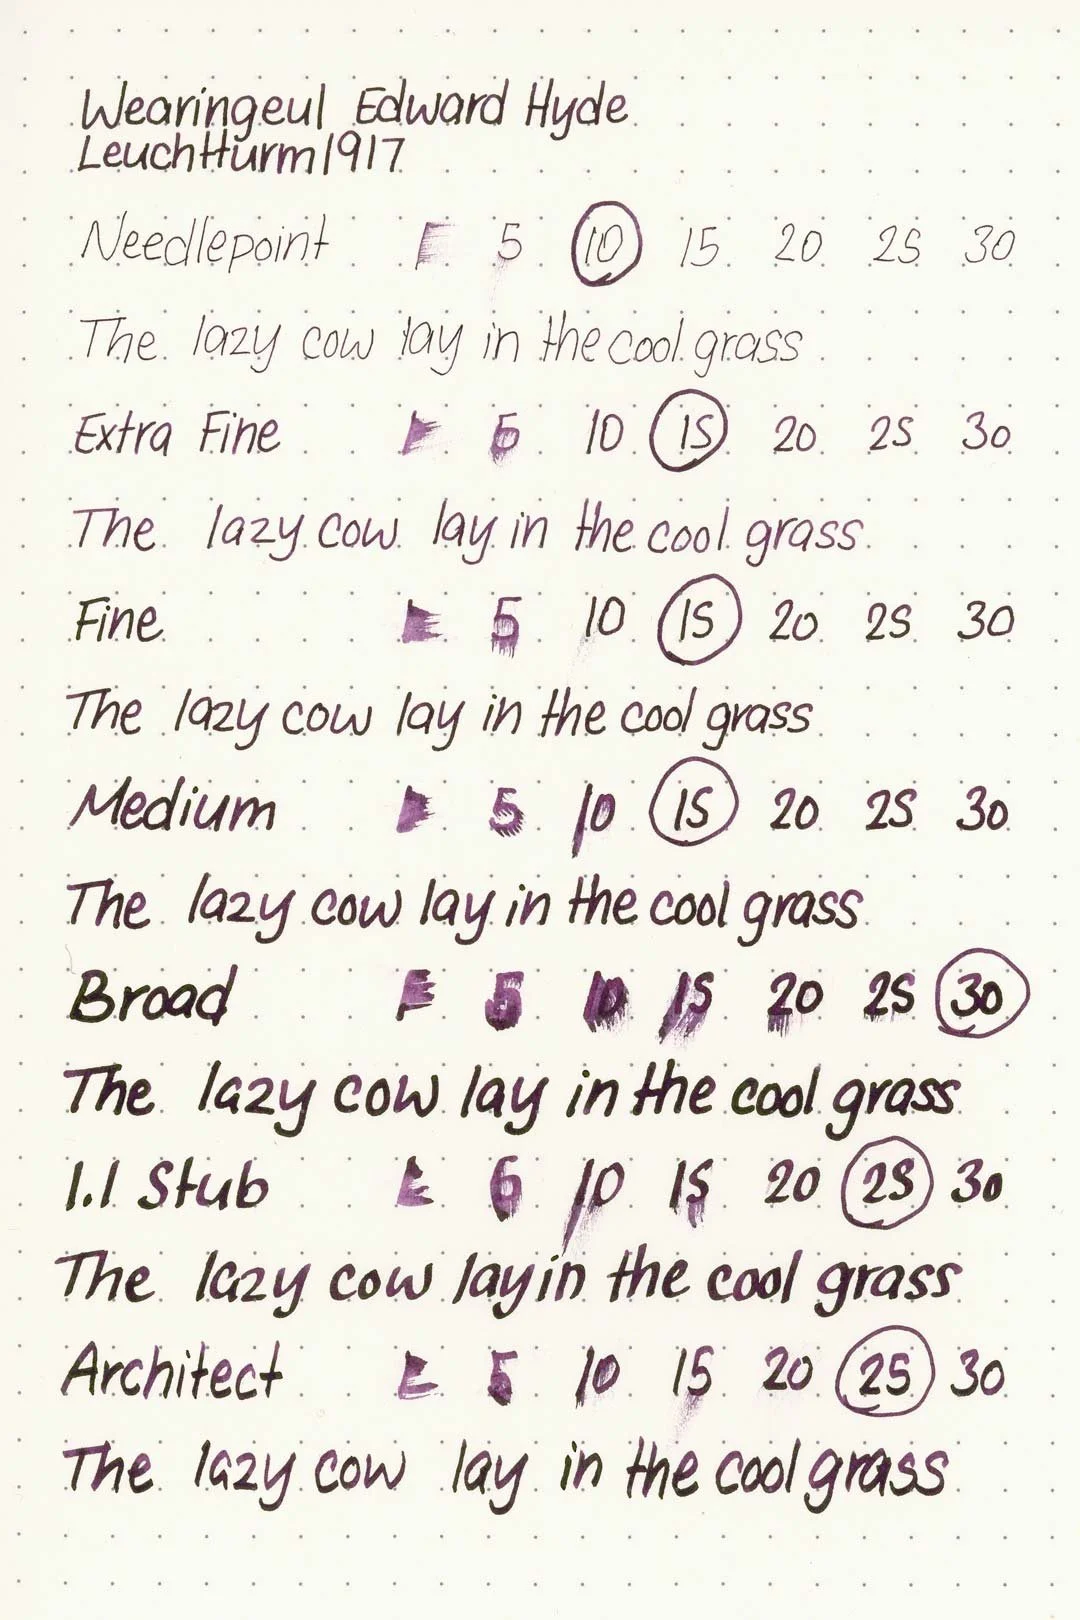 Wearingeul Edward Hyde
Leuchtturm1917
Needlepoint 5 10 15 20 25 30
The lazy cow lay in the cool grass
Extra Fine 5 10 15 20 25 30
The lazy cow lay in the cool grass
Fine 5 10 15 20 25 30
The lazy cow lay in the cool grass
Medium 5 10 15 20 25 30
The lazy cow lay in the cool grass
Broad 5 10 15 20 25 30
The lazy cow lay in the cool grass
1.1 Stub 5 10 15 20 25 30
The lazy cow lay in the cool grass
Architect 5 10 15 20 25 30
The lazy cow lay in the cool grass